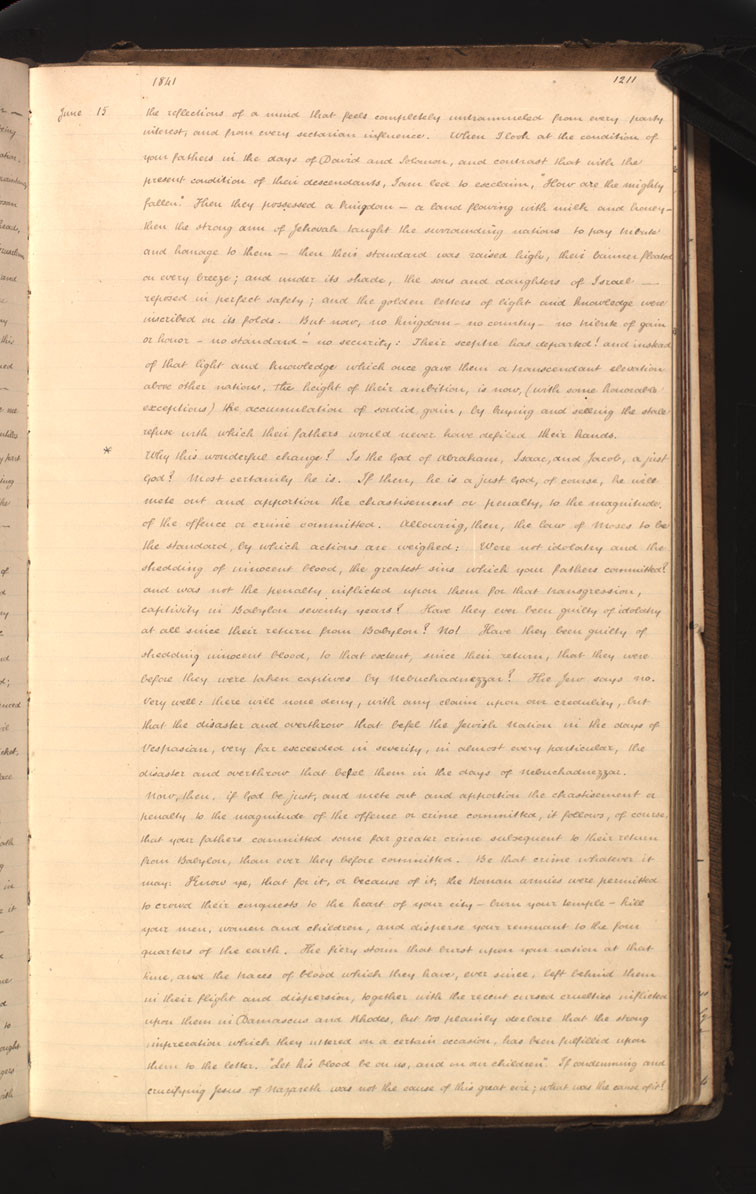 1841 1211
June 15 the reflections of a mind that feels completely untrammeled from every party
interest, and from every sectarian influence. When I look at the condition of
your fathers in the days of David and Solomon, and contrast that with the
present condition of their descendants, I am led to exclaim, "How are the mighty
fallen." Then they possessed a kingdom — a land flowing with milk and honey —
then the strong arm of Jehovah taught the surrounding nations to pay tribute
and homage to them — then their standard was raised high, their banner floated
on every breeze; and under its shade, the sons and daughters of Israel —
reposed in perfect safety; and the golden letters of light and knowledge were
inscribed on its folds. But now, no kingdom — no country — no tribute of gain
or honor — no standard — no security: Their sceptre has departed! and instead
of that light and knowledge which once gave them a transcendant elevation
above other nations. the height of their ambition, is now, (with some honorable
exceptions) the accumulation of sordid gain, by buying and selling the stale
refuse with which their fathers would never have defiled their hands.
* Why this wonderful change? Is the God of Abraham, Isaac, and Jacob, a just
God? Most certainly he is. If then, he is a just God, of course, he will
mete out and apportion the chastisement or penalty, to the magnitude,
of the offence or crime committed. Allowing, then, the law of Moses to be
the standard, by which actions are weighed: Were not idolatry and the
shedding of innocent blood, the greatest sins which your fathers committed?
and was not the penalty inflicted upon them for that transgression,
captivity in Babylon seventy years? Have they ever been guilty of idolatry
at all since their return from Babylon? No! Have they been guilty of
shedding innocent blood, to that extent, since their return, that they were
before they were taken captives by Nebuchadnezzar? The Jew says no.
Very well: there will none deny, with any claim upon our credulity, but
that the disaster and overthrow that befel the Jewish Nation in the days of
Vespasian, very far exceeded in severity, in almost every particular, the
disaster and overthrow that befel them in the days of Nebuchadnezzar.
Now, then, if God be just, and mete out and apportion the chastisement or
penalty to the magnitude of the offence or crime committed, it follows, of course,
that your fathers committed some far greater crime subsequent to their return
from Babylon, than ever they before committed. Be that crime whatever it
may: Know ye, that for it, or because of it, the Roman armies were permitted
to crowd their conquests to the heart of your city — burn your temple — kill
your men, women and children, and disperse your remnant to the four
quarters of the earth. The fiery storm that burst upon your nation at that
time, and the traces of blood which they have, ever since, left behind them
in their flight and dispersion, together with the recent cursed cruelties inflicted
upon them in Damascus and Rhodes, but too plainly declare that the strong
imprecation which they uttered on a certain occasion, has been fulfilled upon
them to the letter. "Let his blood be on us, and on our children." If condemning and
crucifying Jesus of Nazareth was not the cause of this great evil; what was the cause of it?